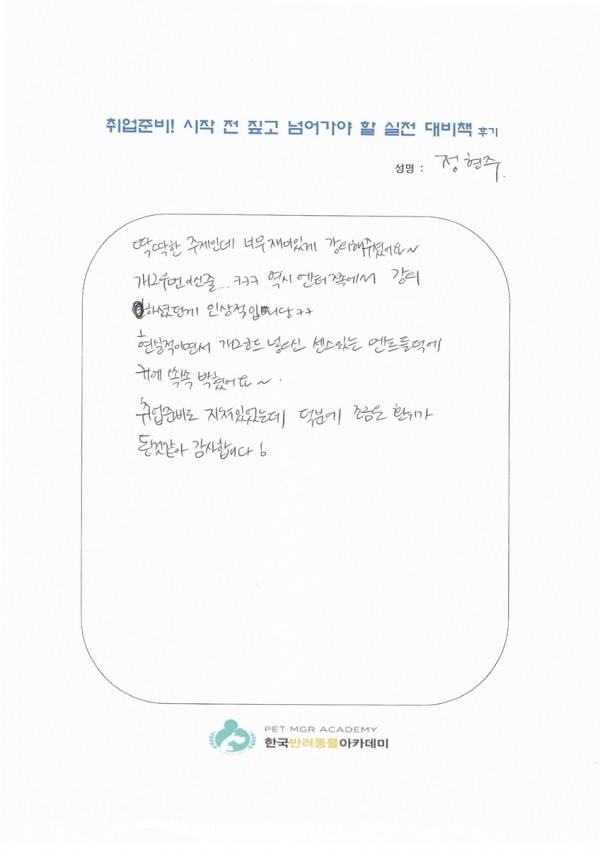 취업준비! 시작 전 짚고 넘어가야 할 실전 대비책 후기
성명 : 정현주.
딱딱한 주제인데 너무 재미있게 강의해주셨어요~
개그우먼이신줄... ㅋㅋㅋ 역시 엔터쪽에서 강의
하셨단게 인상적입니당ㅋㅋ
현실적이면서 개그코드 넣으신 센스있는 멘트들덕에
귀에 쏙쏙 박혔어요~.
취업준비로 지쳐있었는데 덕분에 조금은 환기가
된것같아 감사합니다!
PET MGR ACADEMY
한국반려동물아카데미